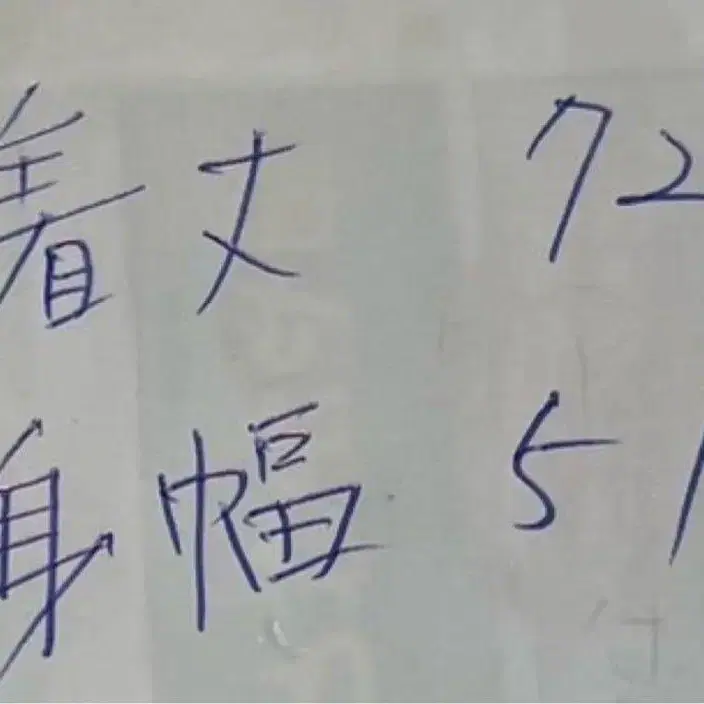 着丈 72
身幅 51